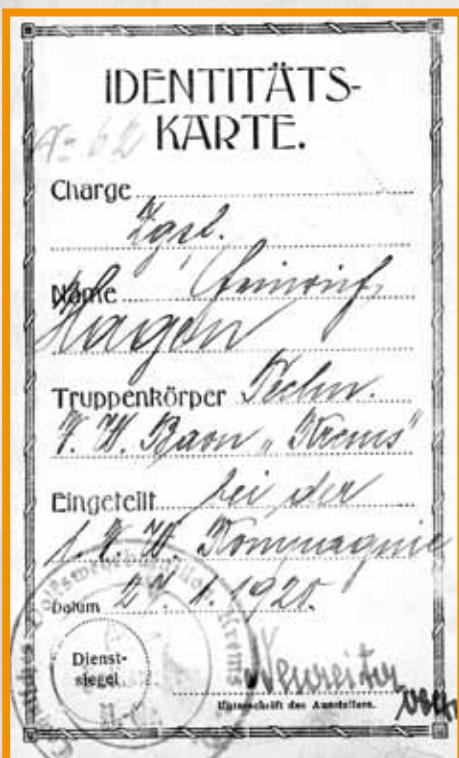 IDENTITÄTS-
KARTE.
Charge
Zgsf.
Name Heinrich
Hagen
Truppenkörper Techn.
V. W. Baon „Krems"
Eingeteilt bei der
1. V. W. Kompagnie
Datum 27. 1. 1920.
Dienst-
siegel
Neureiter
Unterschrift des Ausstellers.